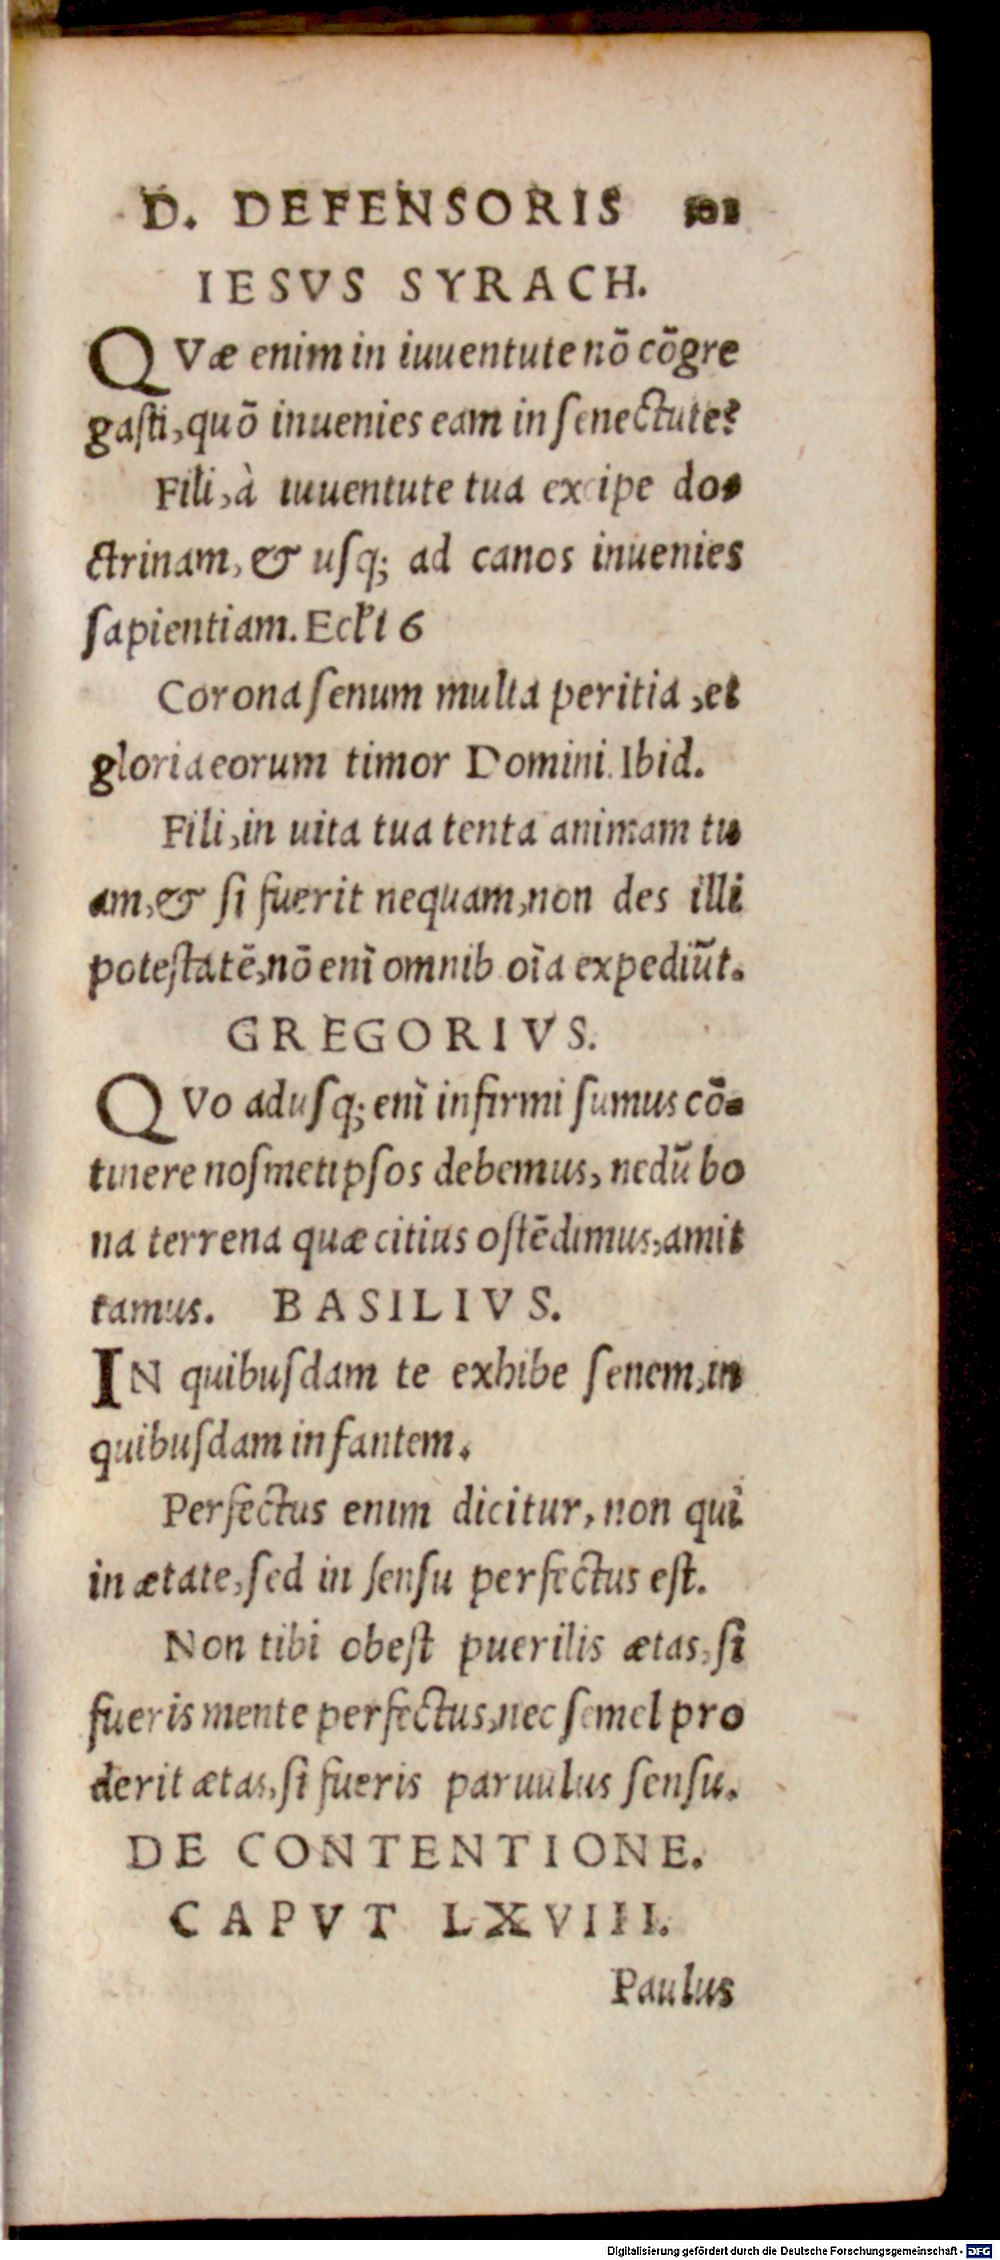 D. DEFENSORIS
IESVS SYRACH.
QVæ enim in iuuentute nō cōgre
gaſti, quō inuenies eam in ſenectute?
Fili, à iuuentute tua excipe do-
ctrinam, & uſq; ad canos inuenies
ſapientiam. Eccl̃i 6
Corona ſenum multa peritia, et
gloria eorum timor Domini. Ibid.
Fili, in uita tua tenta animam tu
am, & ſi fuerit nequam, non des illi
poteſtatē, nō enī omnib oīa expediūt.
GREGORIVS.
QVo aduſq; enī infirmi ſumus cō-
tinere noſmetipſos debemus, nedū bo
na terrena quæ citius oſtēdimus, amit
tamus. BASILIVS.
IN quibuſdam te exhibe ſenem, in
quibuſdam infantem.
Perfectus enim dicitur, non qui
in ætate, ſed in ſenſu perfectus eſt.
Non tibi obeſt puerilis ætas, ſi
fueris mente perfectus, nec ſemel pro
derit ætas, ſi fueris paruulus ſenſu.
DE CONTENTIONE.
CAPVT LXVIII.
Paulus
Digitalisierung gefördert durch die Deutsche Forschungsgemeinschaft - DFG